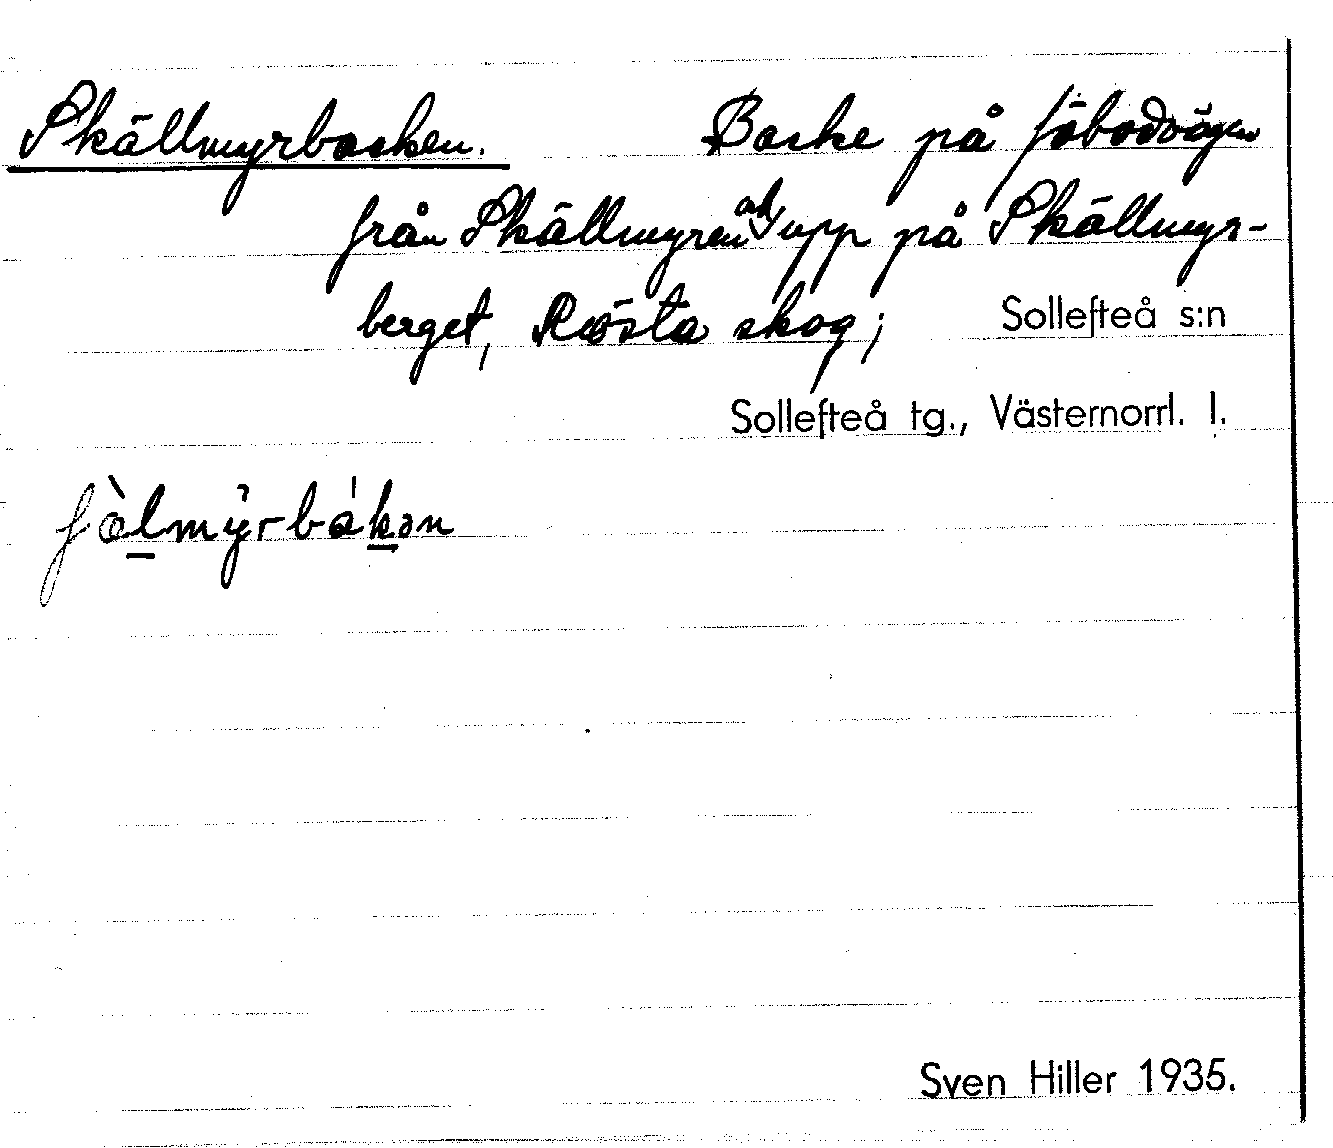 Skällmyrbacken. Backe på fäbodvägen
från Skällmyren och upp på Skällmyr-
berget, Rösta skog; Sollefteå s:n
Sollefteå tg., Västernorrl. l.
ʃæ̀lmy̆rbákən
Sven Hiller 1935.